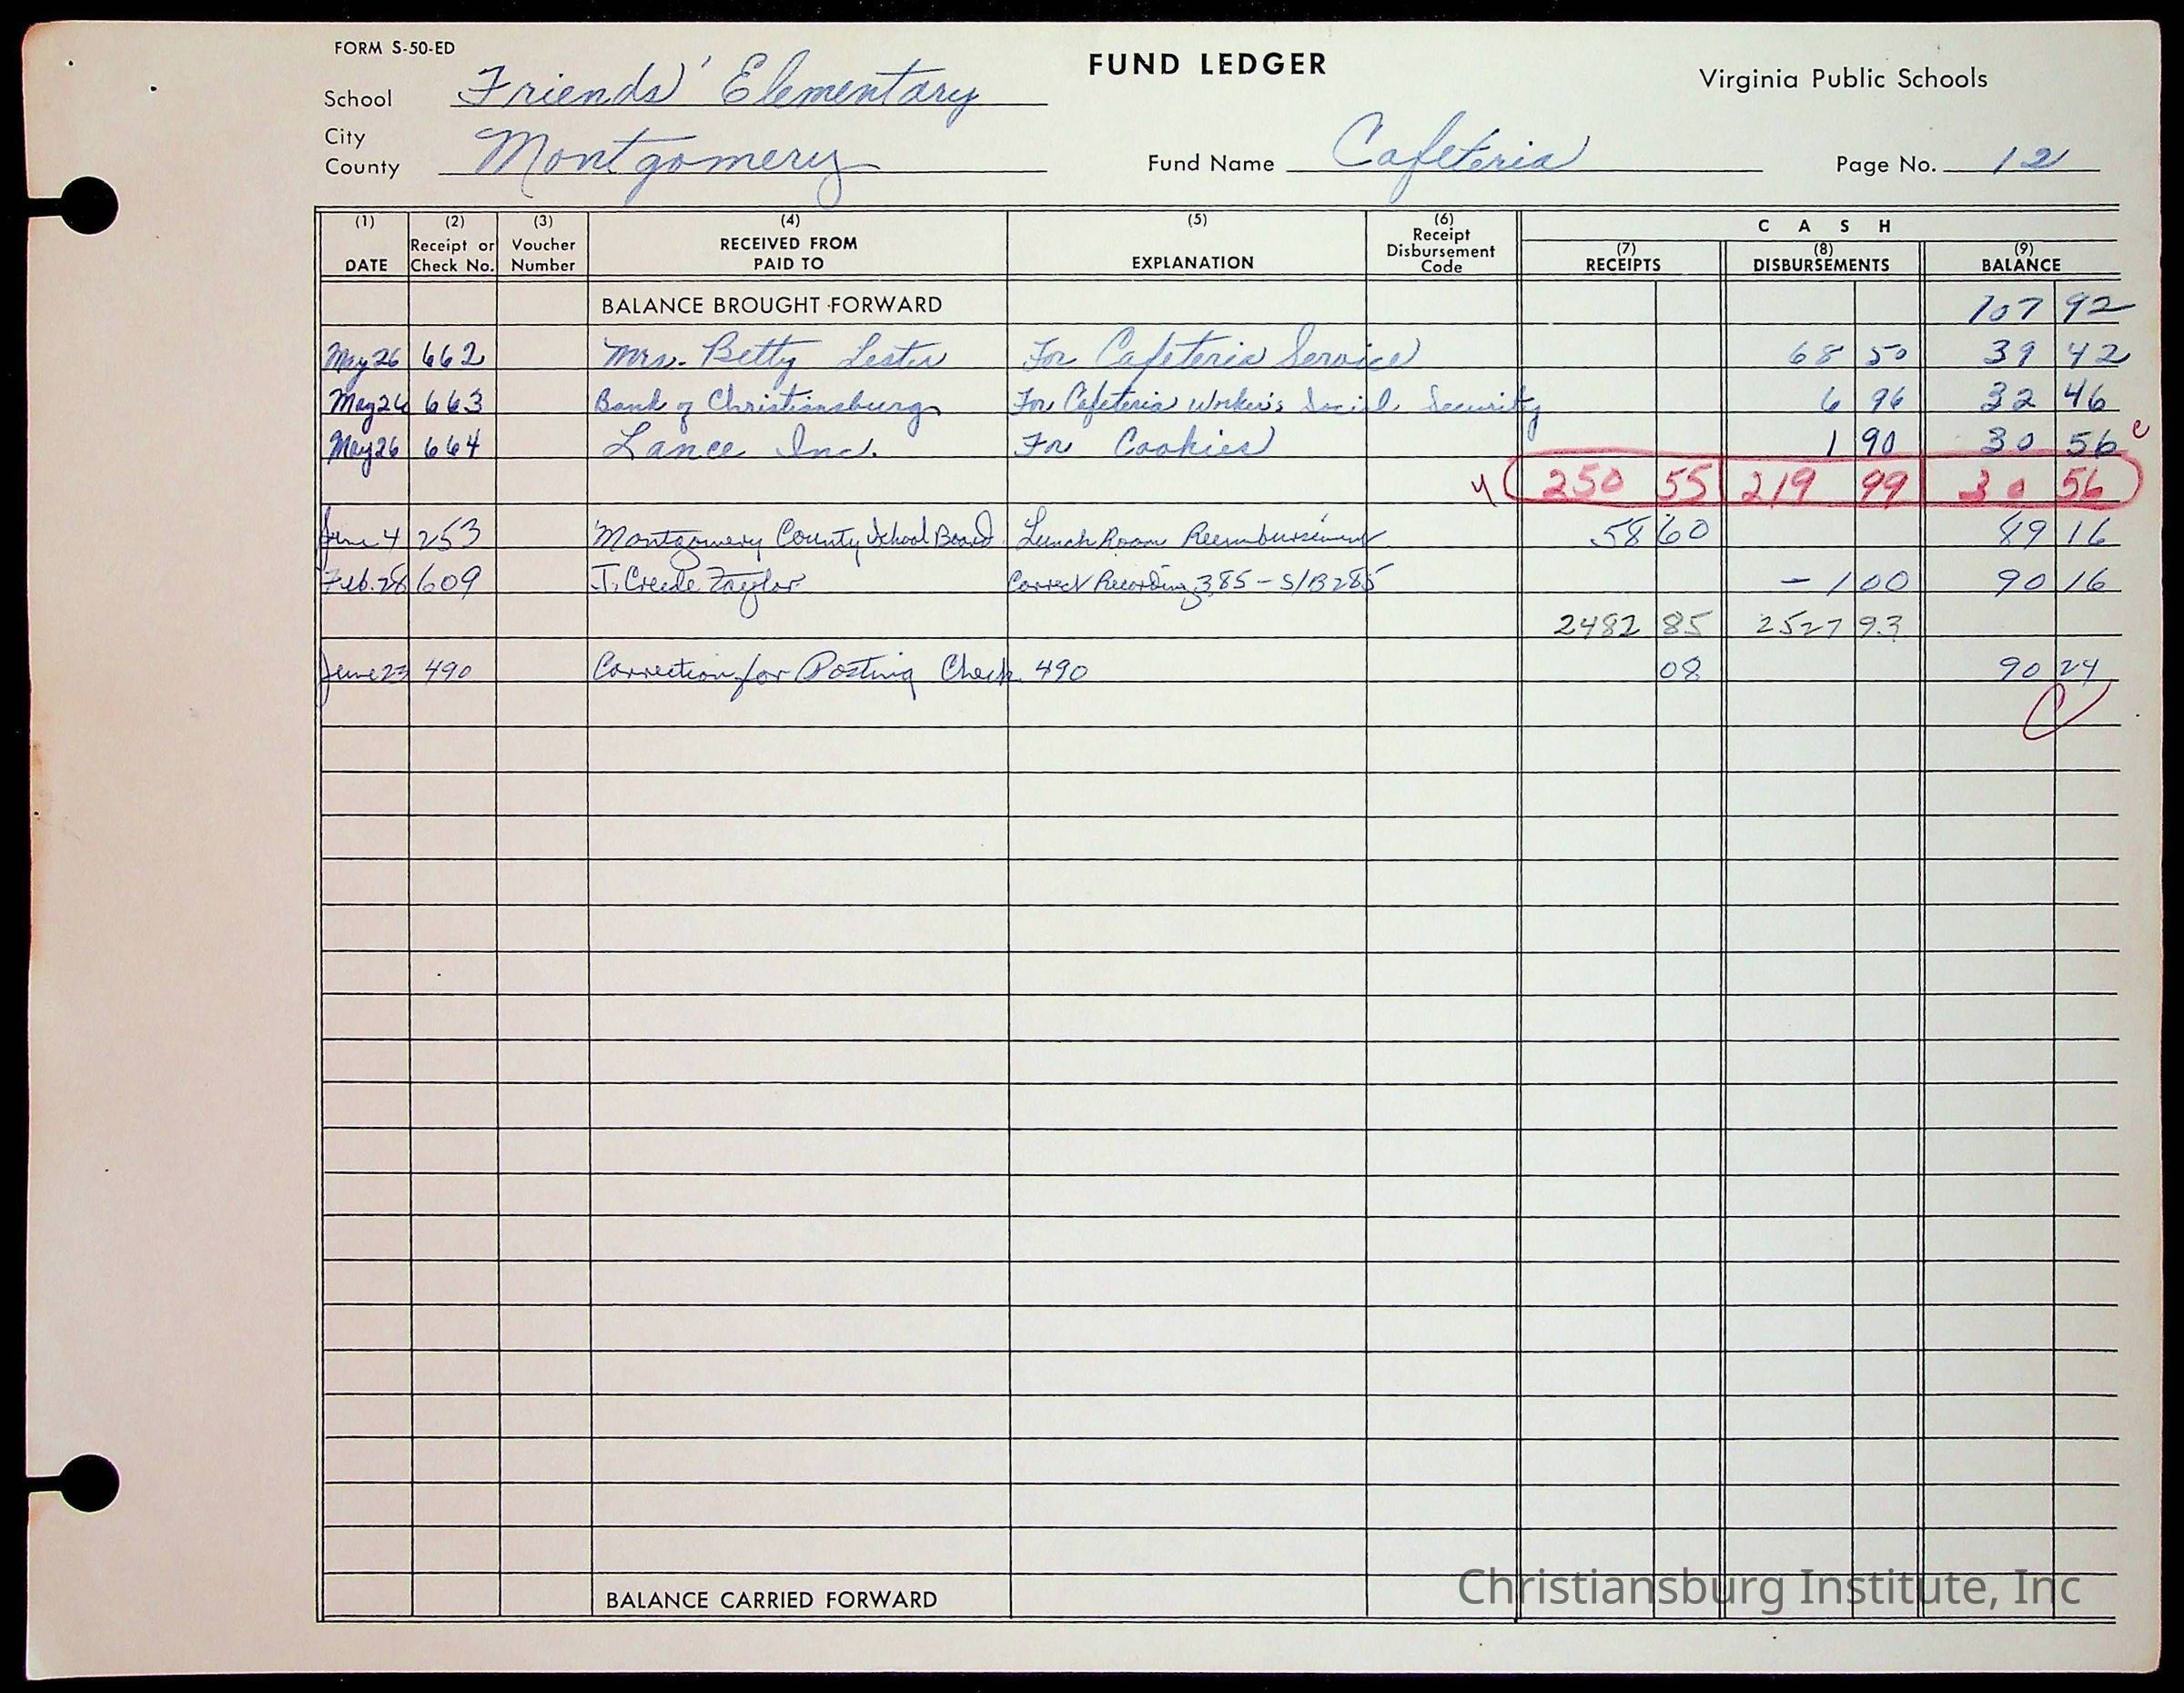 FORM S-50-ED
FUND LEDGER
Virginia Public Schools
School Friends' Elementary
City
County Montgomery
Fund Name Cafeteria
Page No. 12
(1) DATE (2) Receipt or Check No. (3) Voucher Number (4) RECEIVED FROM PAID TO (5) EXPLANATION (6) Receipt Disbursement Code CASH (7) RECEIPTS (8) DISBURSEMENTS (9) BALANCE
BALANCE BROUGHT FORWARD 107 92
May 26 662 Mrs. Betty Lester For Cafeteria Service 68 50 39 42
May 26 663 Bank of Christiansburg For Cafeteria Worker's Social Security 6 96 32 46
May 26 664 Lance Inc. For Cookies 1 90 30 56 c
250 55 219 99 30 56
June 4 253 Montgomery County School Board Lunch Room Reembursement 58 60 89 16
Feb. 28 609 J. Creede Taylor Correct Recording 3.85 - S/B 2.85 - 1 00 90 16
2482 85 2527 93
June 23 490 Correction for Posting Check 490 08 90 24
C
BALANCE CARRIED FORWARD
Christiansburg Institute, Inc